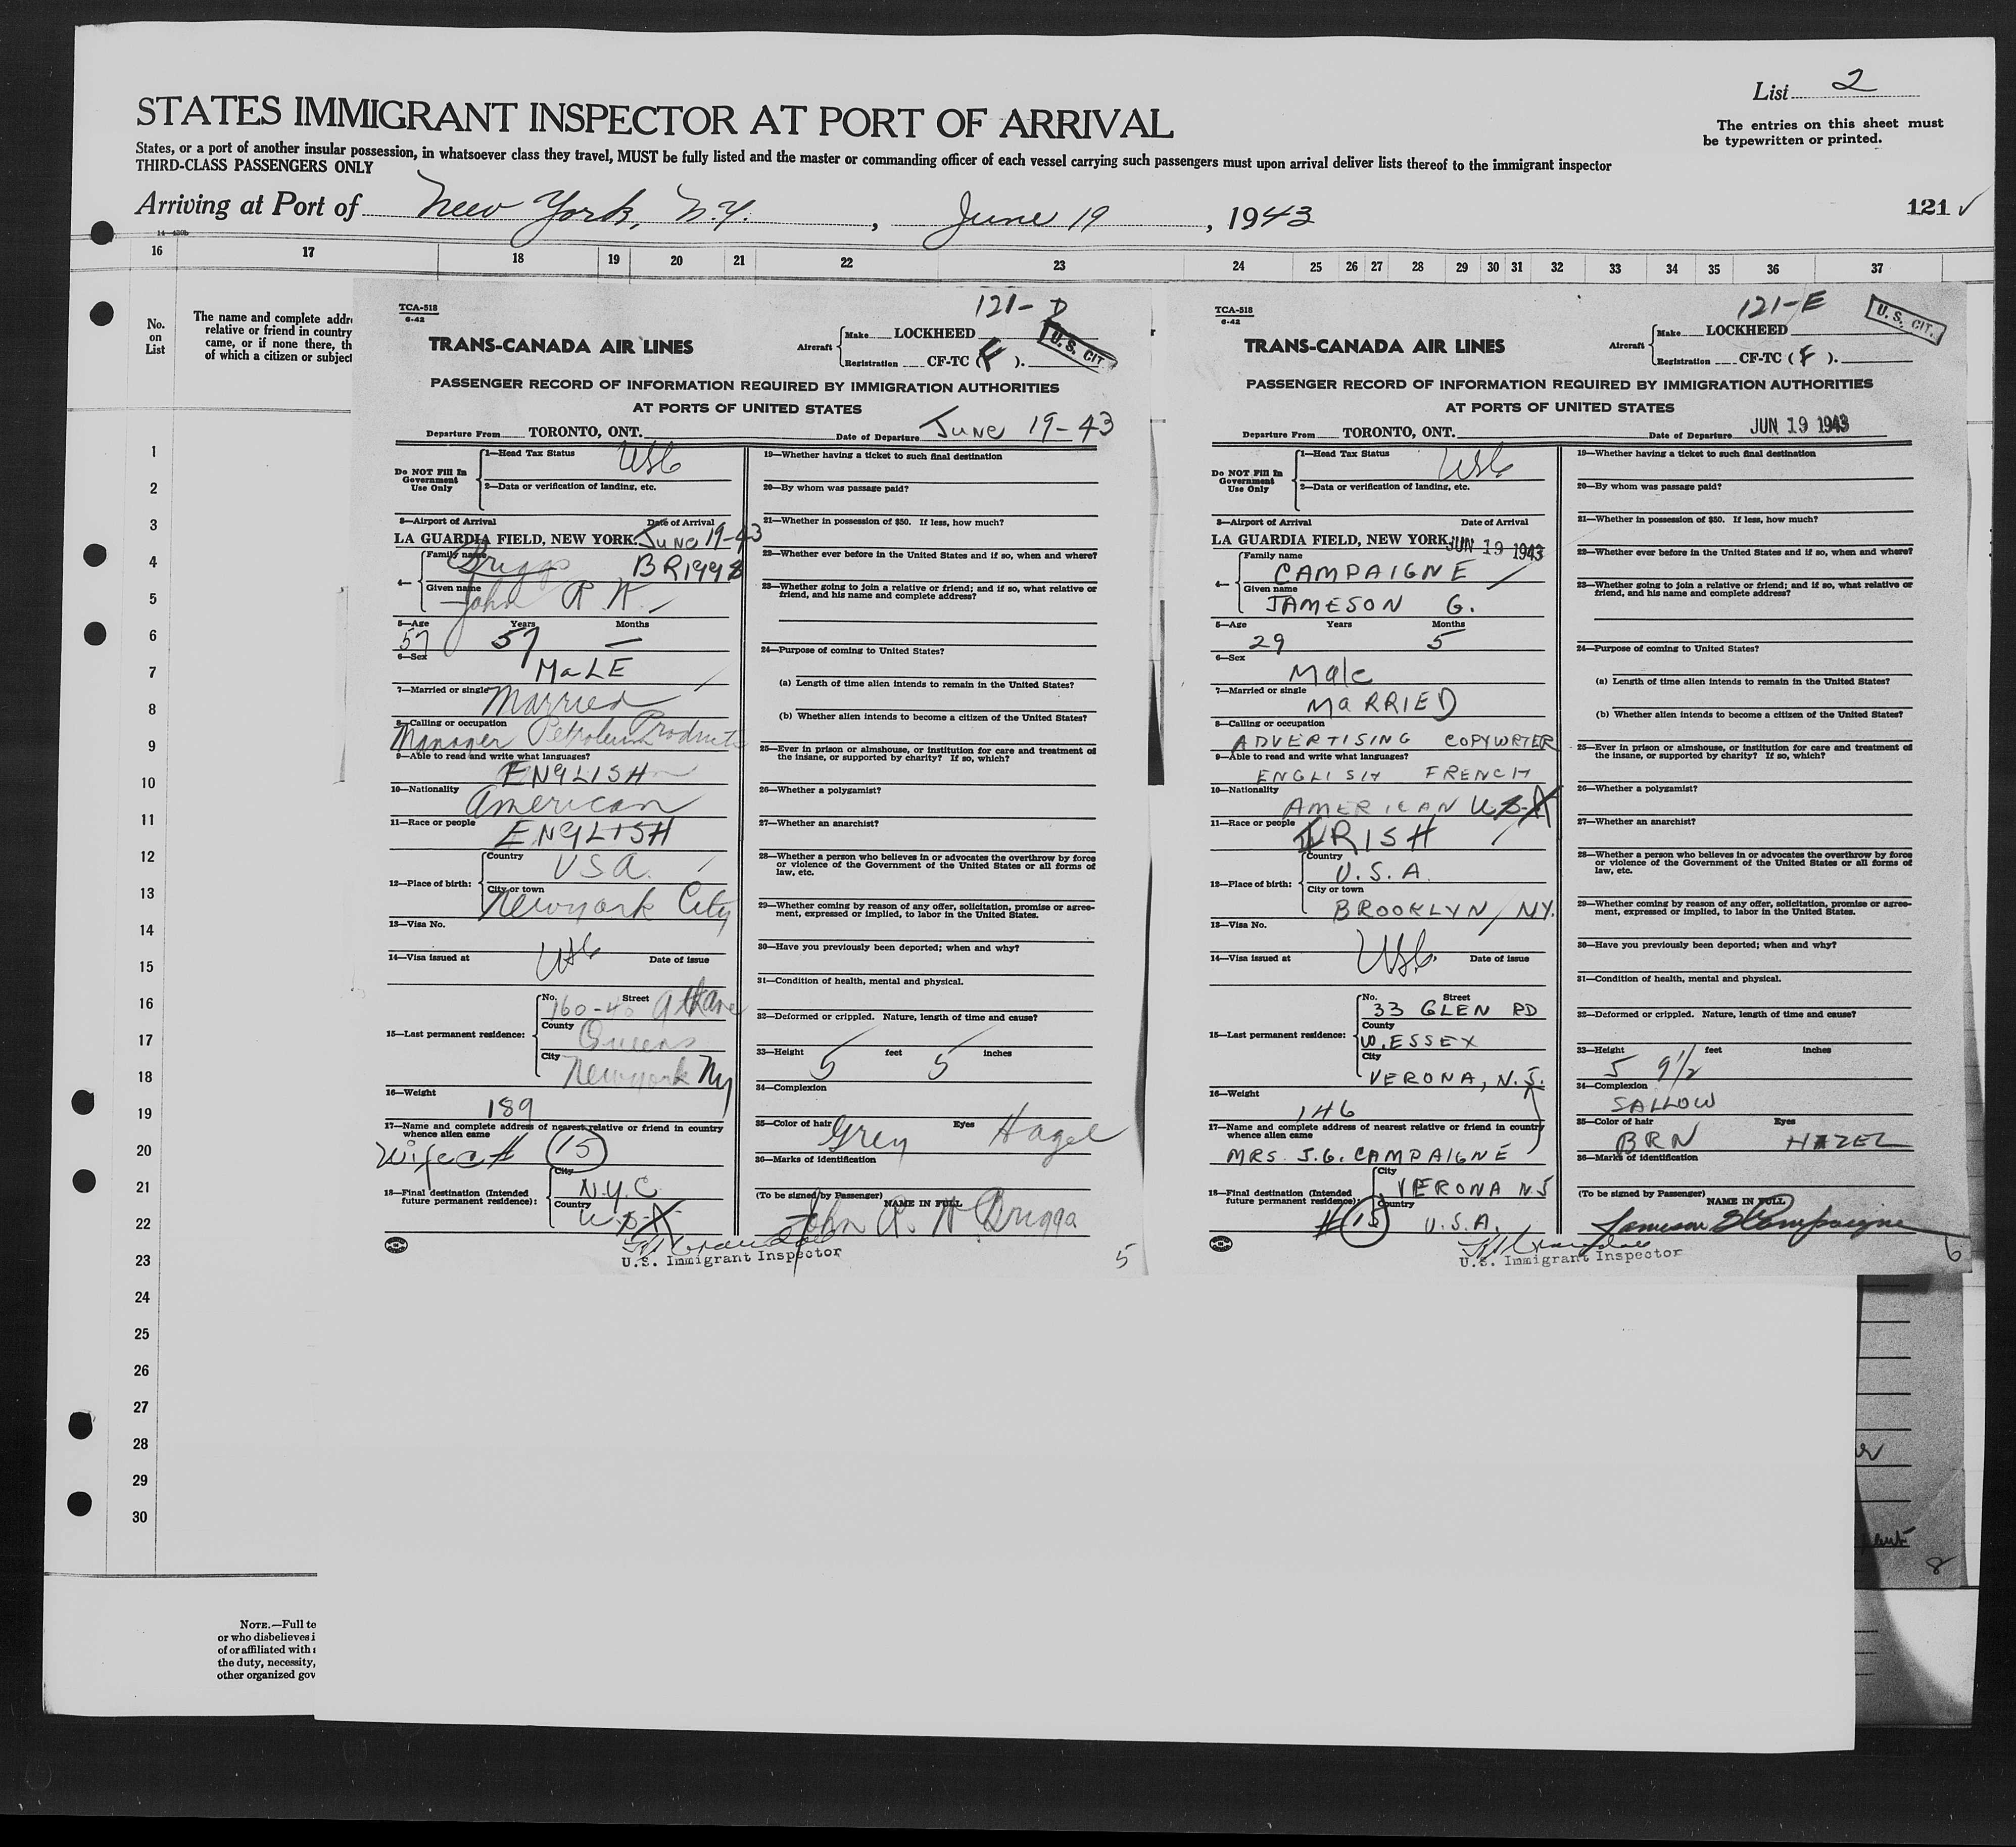 List 2
STATES IMMIGRANT INSPECTOR AT PORT OF ARRIVAL
The entries on this sheet must
be typewritten or printed.
States, or a port of another insular possession, in whatsoever class they travel, MUST be fully listed and the master or commanding officer of each vessel carrying such passengers must upon arrival deliver lists thereof to the immigrant inspector
THIRD-CLASS PASSENGERS ONLY
Arriving at Port of New York, N.Y., June 19, 1943
121 ✓
16 17 18 19 20 21 22 23 24 25 26 27 28 29 30 31 32 33 34 35 36 37
No.
on
List
The name and complete addr
relative or friend in country
came, or if none there, th
of which a citizen or subject
1
2
3
4
5
6
7
8
9
10
11
12
13
14
15
16
17
18
19
20
21
22
23
24
25
26
27
28
29
30
TCA-518
6-42
121-D
TRANS-CANADA AIR LINES
Aircraft
Make LOCKHEED
Registration CF-TC (F).
U.S. CIT.
PASSENGER RECORD OF INFORMATION REQUIRED BY IMMIGRATION AUTHORITIES
AT PORTS OF UNITED STATES
Departure From TORONTO, ONT. Date of Departure June 19-43
Do NOT Fill In
Government
Use Only
1—Head Tax Status USC
2—Data or verification of landing, etc.
3—Airport of Arrival Date of Arrival
LA GUARDIA FIELD, NEW YORK. June 19-43
4—
Family name Briggs BRIGGS
Given name John R. H.
5—Age Years Months
57 57 —
6—Sex MaLE
7—Married or single Married
8—Calling or occupation
Manager Petroleum Products
9—Able to read and write what languages?
ENGLISH
10—Nationality American
11—Race or people ENGLISH
12—Place of birth:
Country USA.
City or town Newyork City
13—Visa No.
USC
14—Visa issued at Date of issue
15—Last permanent residence:
No. Street 160-
County Queens
City Newyork Ny
16—Weight
189
17—Name and complete address of nearest relative or friend in country
whence alien came
Wife 15
18—Final destination (Intended
future permanent residence):
City N.Y.C.
Country U.S.A
19—Whether having a ticket to such final destination
20—By whom was passage paid?
21—Whether in possession of $50. If less, how much?
22—Whether ever before in the United States and if so, when and where?
23—Whether going to join a relative or friend; and if so, what relative or
friend, and his name and complete address?
24—Purpose of coming to United States?
(a) Length of time alien intends to remain in the United States?
(b) Whether alien intends to become a citizen of the United States?
25—Ever in prison or almshouse, or institution for care and treatment of
the insane, or supported by charity? If so, which?
26—Whether a polygamist?
27—Whether an anarchist?
28—Whether a person who believes in or advocates the overthrow by force
or violence of the Government of the United States or all forms of
law, etc.
29—Whether coming by reason of any offer, solicitation, promise or agree-
ment, expressed or implied, to labor in the United States.
30—Have you previously been deported; when and why?
31—Condition of health, mental and physical.
32—Deformed or crippled. Nature, length of time and cause?
33—Height 5 feet 5 inches
34—Complexion
35—Color of hair Grey Eyes Hazel
36—Marks of identification
(To be signed by Passenger) NAME IN FULL
John R. H Briggs
U.S. Immigrant Inspector
5
TCA-518
6-42
121-E
TRANS-CANADA AIR LINES
Aircraft
Make LOCKHEED
Registration CF-TC (F).
U. S. CIT.
PASSENGER RECORD OF INFORMATION REQUIRED BY IMMIGRATION AUTHORITIES
AT PORTS OF UNITED STATES
Departure From TORONTO, ONT. Date of Departure JUN 19 1943
Do NOT Fill In
Government
Use Only
1—Head Tax Status USC
2—Data or verification of landing, etc.
3—Airport of Arrival Date of Arrival
LA GUARDIA FIELD, NEW YORK. JUN 19 1943
4—
Family name
CAMPAIGNE
Given name
JAMESON G.
5—Age Years Months
29 5
6—Sex
Male
7—Married or single
MaRRIED
8—Calling or occupation
ADVERTISING COPYWRTER
9—Able to read and write what languages?
ENGLISH FRENCH
10—Nationality
AMERICAN U.S.A
11—Race or people IRISH
12—Place of birth:
Country
U.S.A.
City or town
BROOKLYN, NY.
13—Visa No.
USC.
14—Visa issued at Date of issue
15—Last permanent residence:
No. Street
33 GLEN RD
County
W. ESSEX
City
VERONA, N.J.
16—Weight
146
17—Name and complete address of nearest relative or friend in country
whence alien came
MRS. J.G. CAMPAIGNE
18—Final destination (Intended
future permanent residence):
City
VERONA NJ
Country
# 15 U.S.A.
19—Whether having a ticket to such final destination
20—By whom was passage paid?
21—Whether in possession of $50. If less, how much?
22—Whether ever before in the United States and if so, when and where?
23—Whether going to join a relative or friend; and if so, what relative or
friend, and his name and complete address?
24—Purpose of coming to United States?
(a) Length of time alien intends to remain in the United States?
(b) Whether alien intends to become a citizen of the United States?
25—Ever in prison or almshouse, or institution for care and treatment of
the insane, or supported by charity? If so, which?
26—Whether a polygamist?
27—Whether an anarchist?
28—Whether a person who believes in or advocates the overthrow by force
or violence of the Government of the United States or all forms of
law, etc.
29—Whether coming by reason of any offer, solicitation, promise or agree-
ment, expressed or implied, to labor in the United States.
30—Have you previously been deported; when and why?
31—Condition of health, mental and physical.
32—Deformed or crippled. Nature, length of time and cause?
33—Height feet inches
5 9 1/2
34—Complexion
SALLOW
35—Color of hair Eyes
BRN HAZEL
36—Marks of identification
(To be signed by Passenger) NAME IN FULL
Jameson G Campaigne
U.S. Immigrant Inspector
6
8
NOTE.—Full te
or who disbelieves i
of or affiliated with
the duty, necessity,
other organized gov